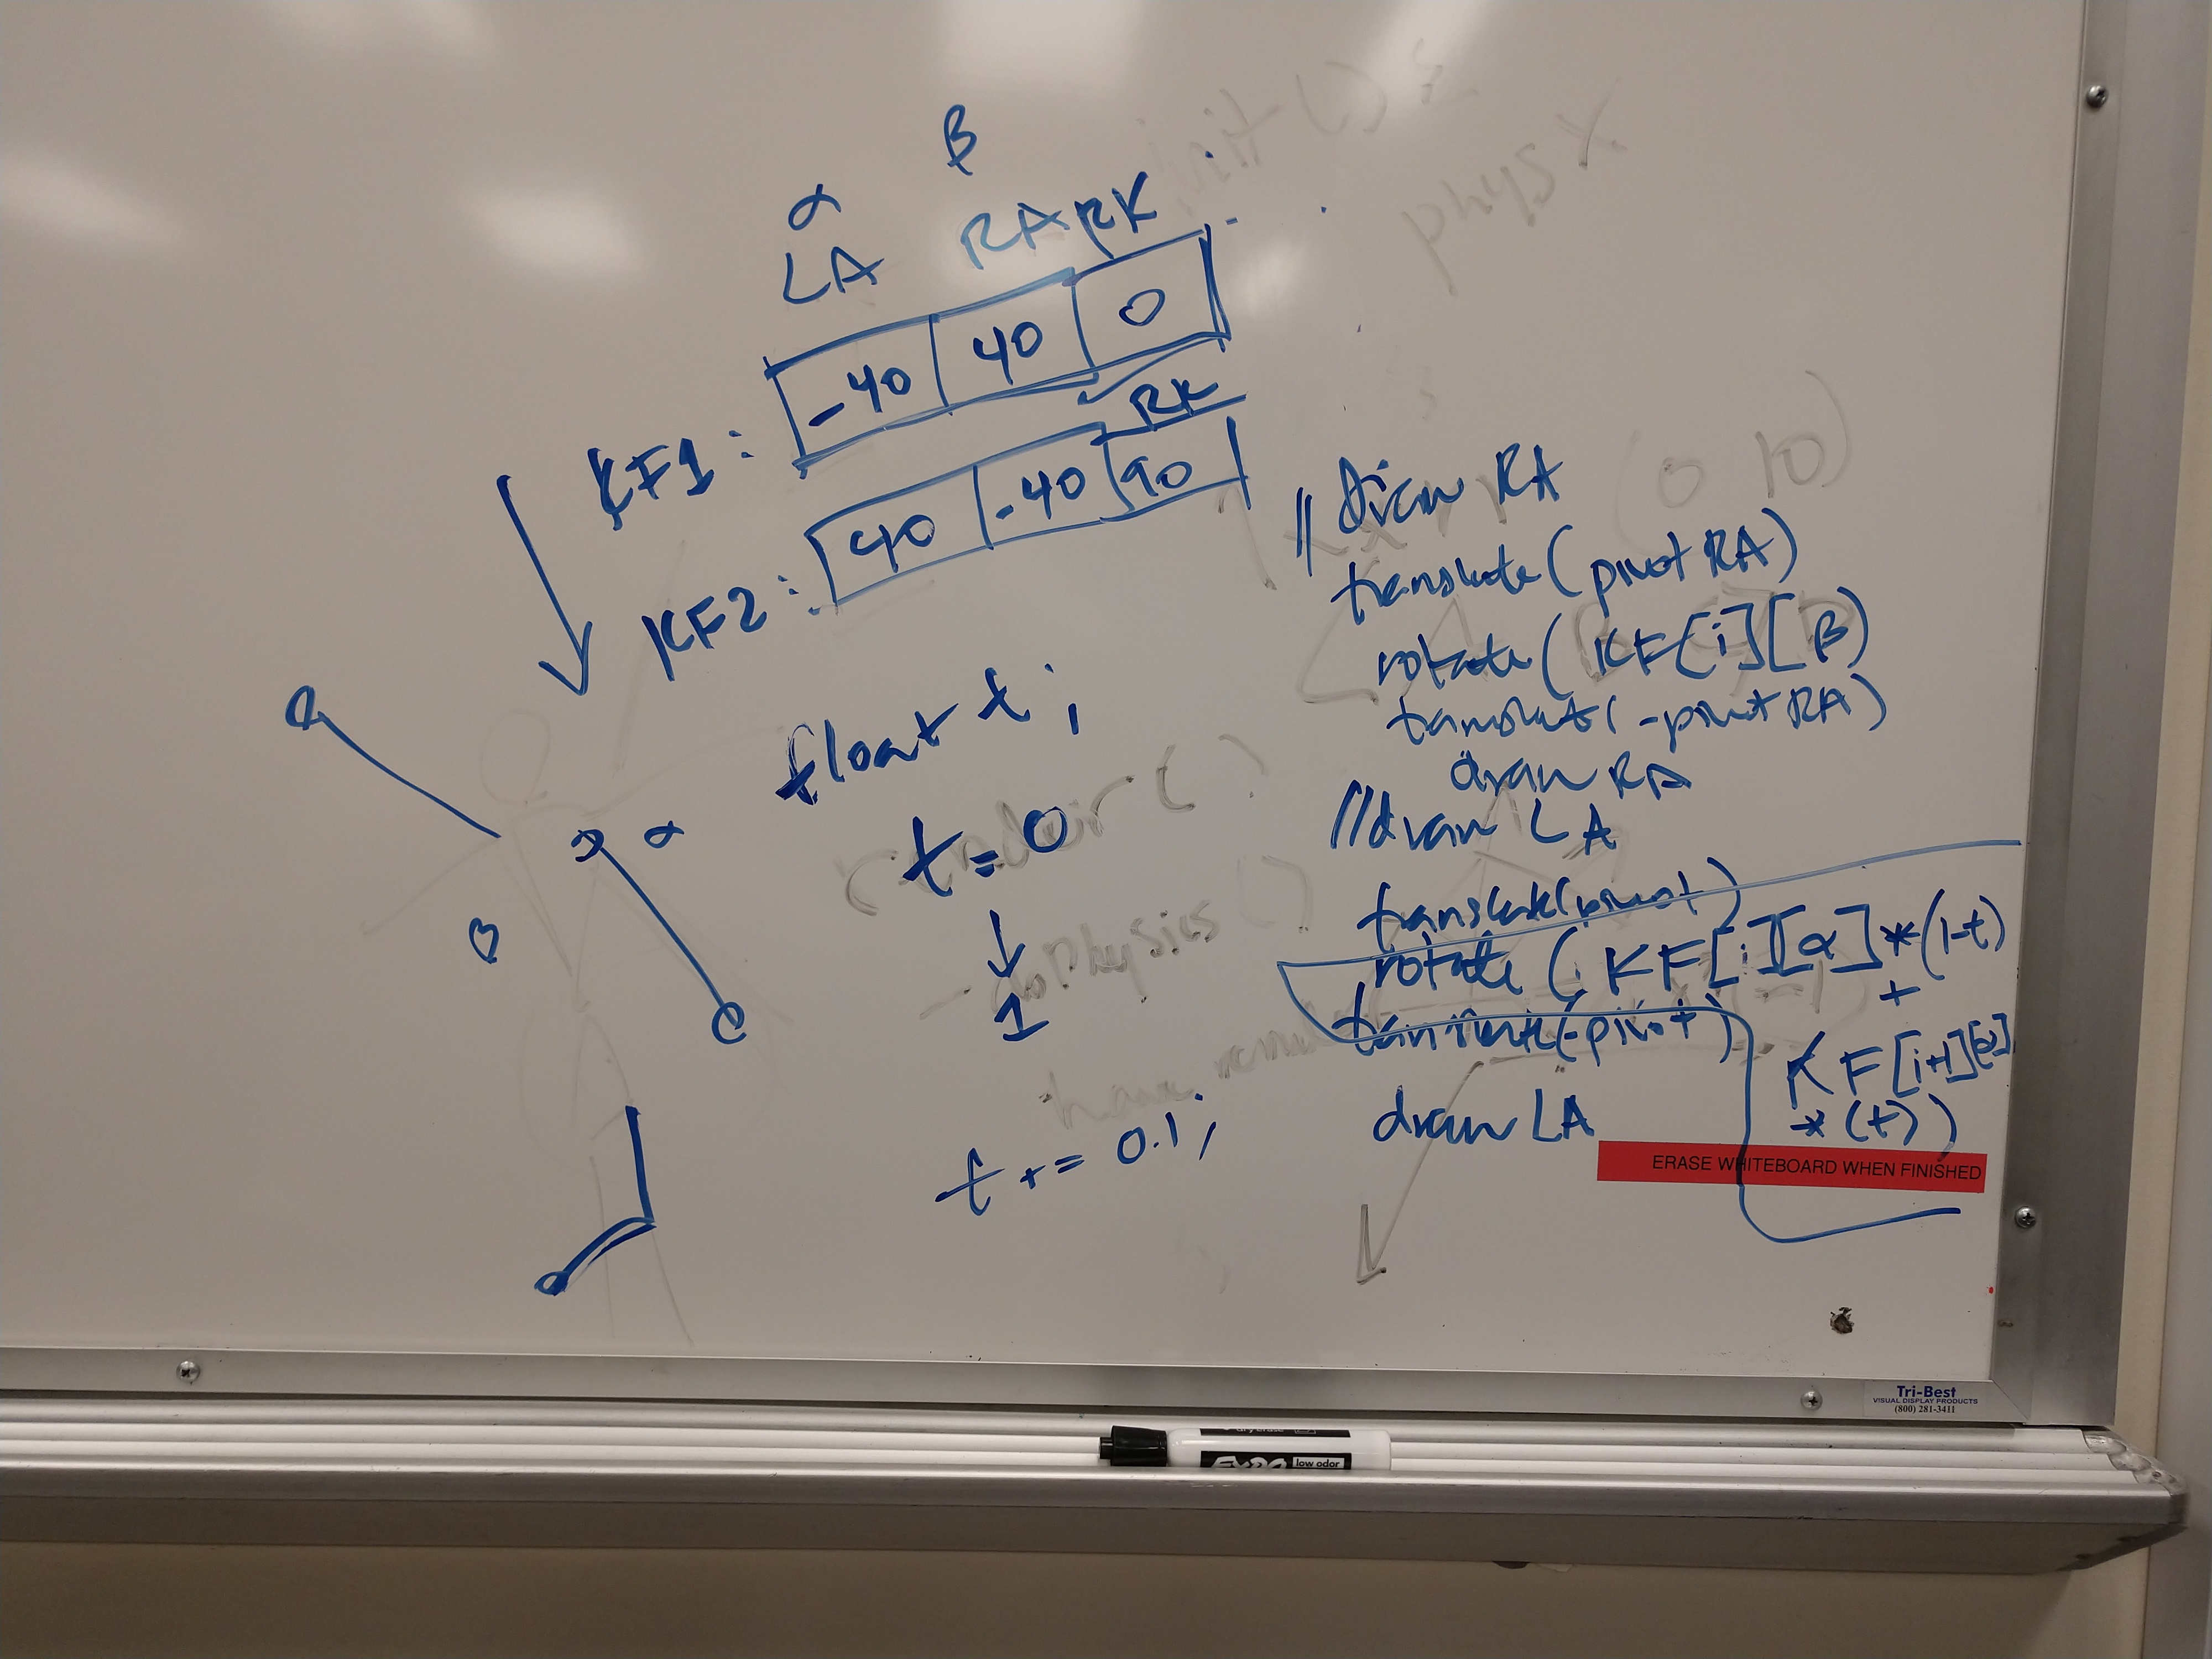 α β
LA RA RK . . .
KF1: -40 40 0
RK
KF2: 40 -40 90
float t;
t=0
↓
1
t += 0.1;
α
β
// draw RA
translate(pivot RA)
rotate(KF[i][β)
translate(-pivot RA)
draw RA
//draw LA
translate(pivot)
rotate (KF[i][α]*(1-t)
+
KF[i+1][α]
*(t))
translate(-pivot)
draw LA
render()
doPhysics()
(0 10)
ERASE WHITEBOARD WHEN FINISHED
Tri-Best
VISUAL DISPLAY PRODUCTS
(800) 281-3411
EXPO low odor